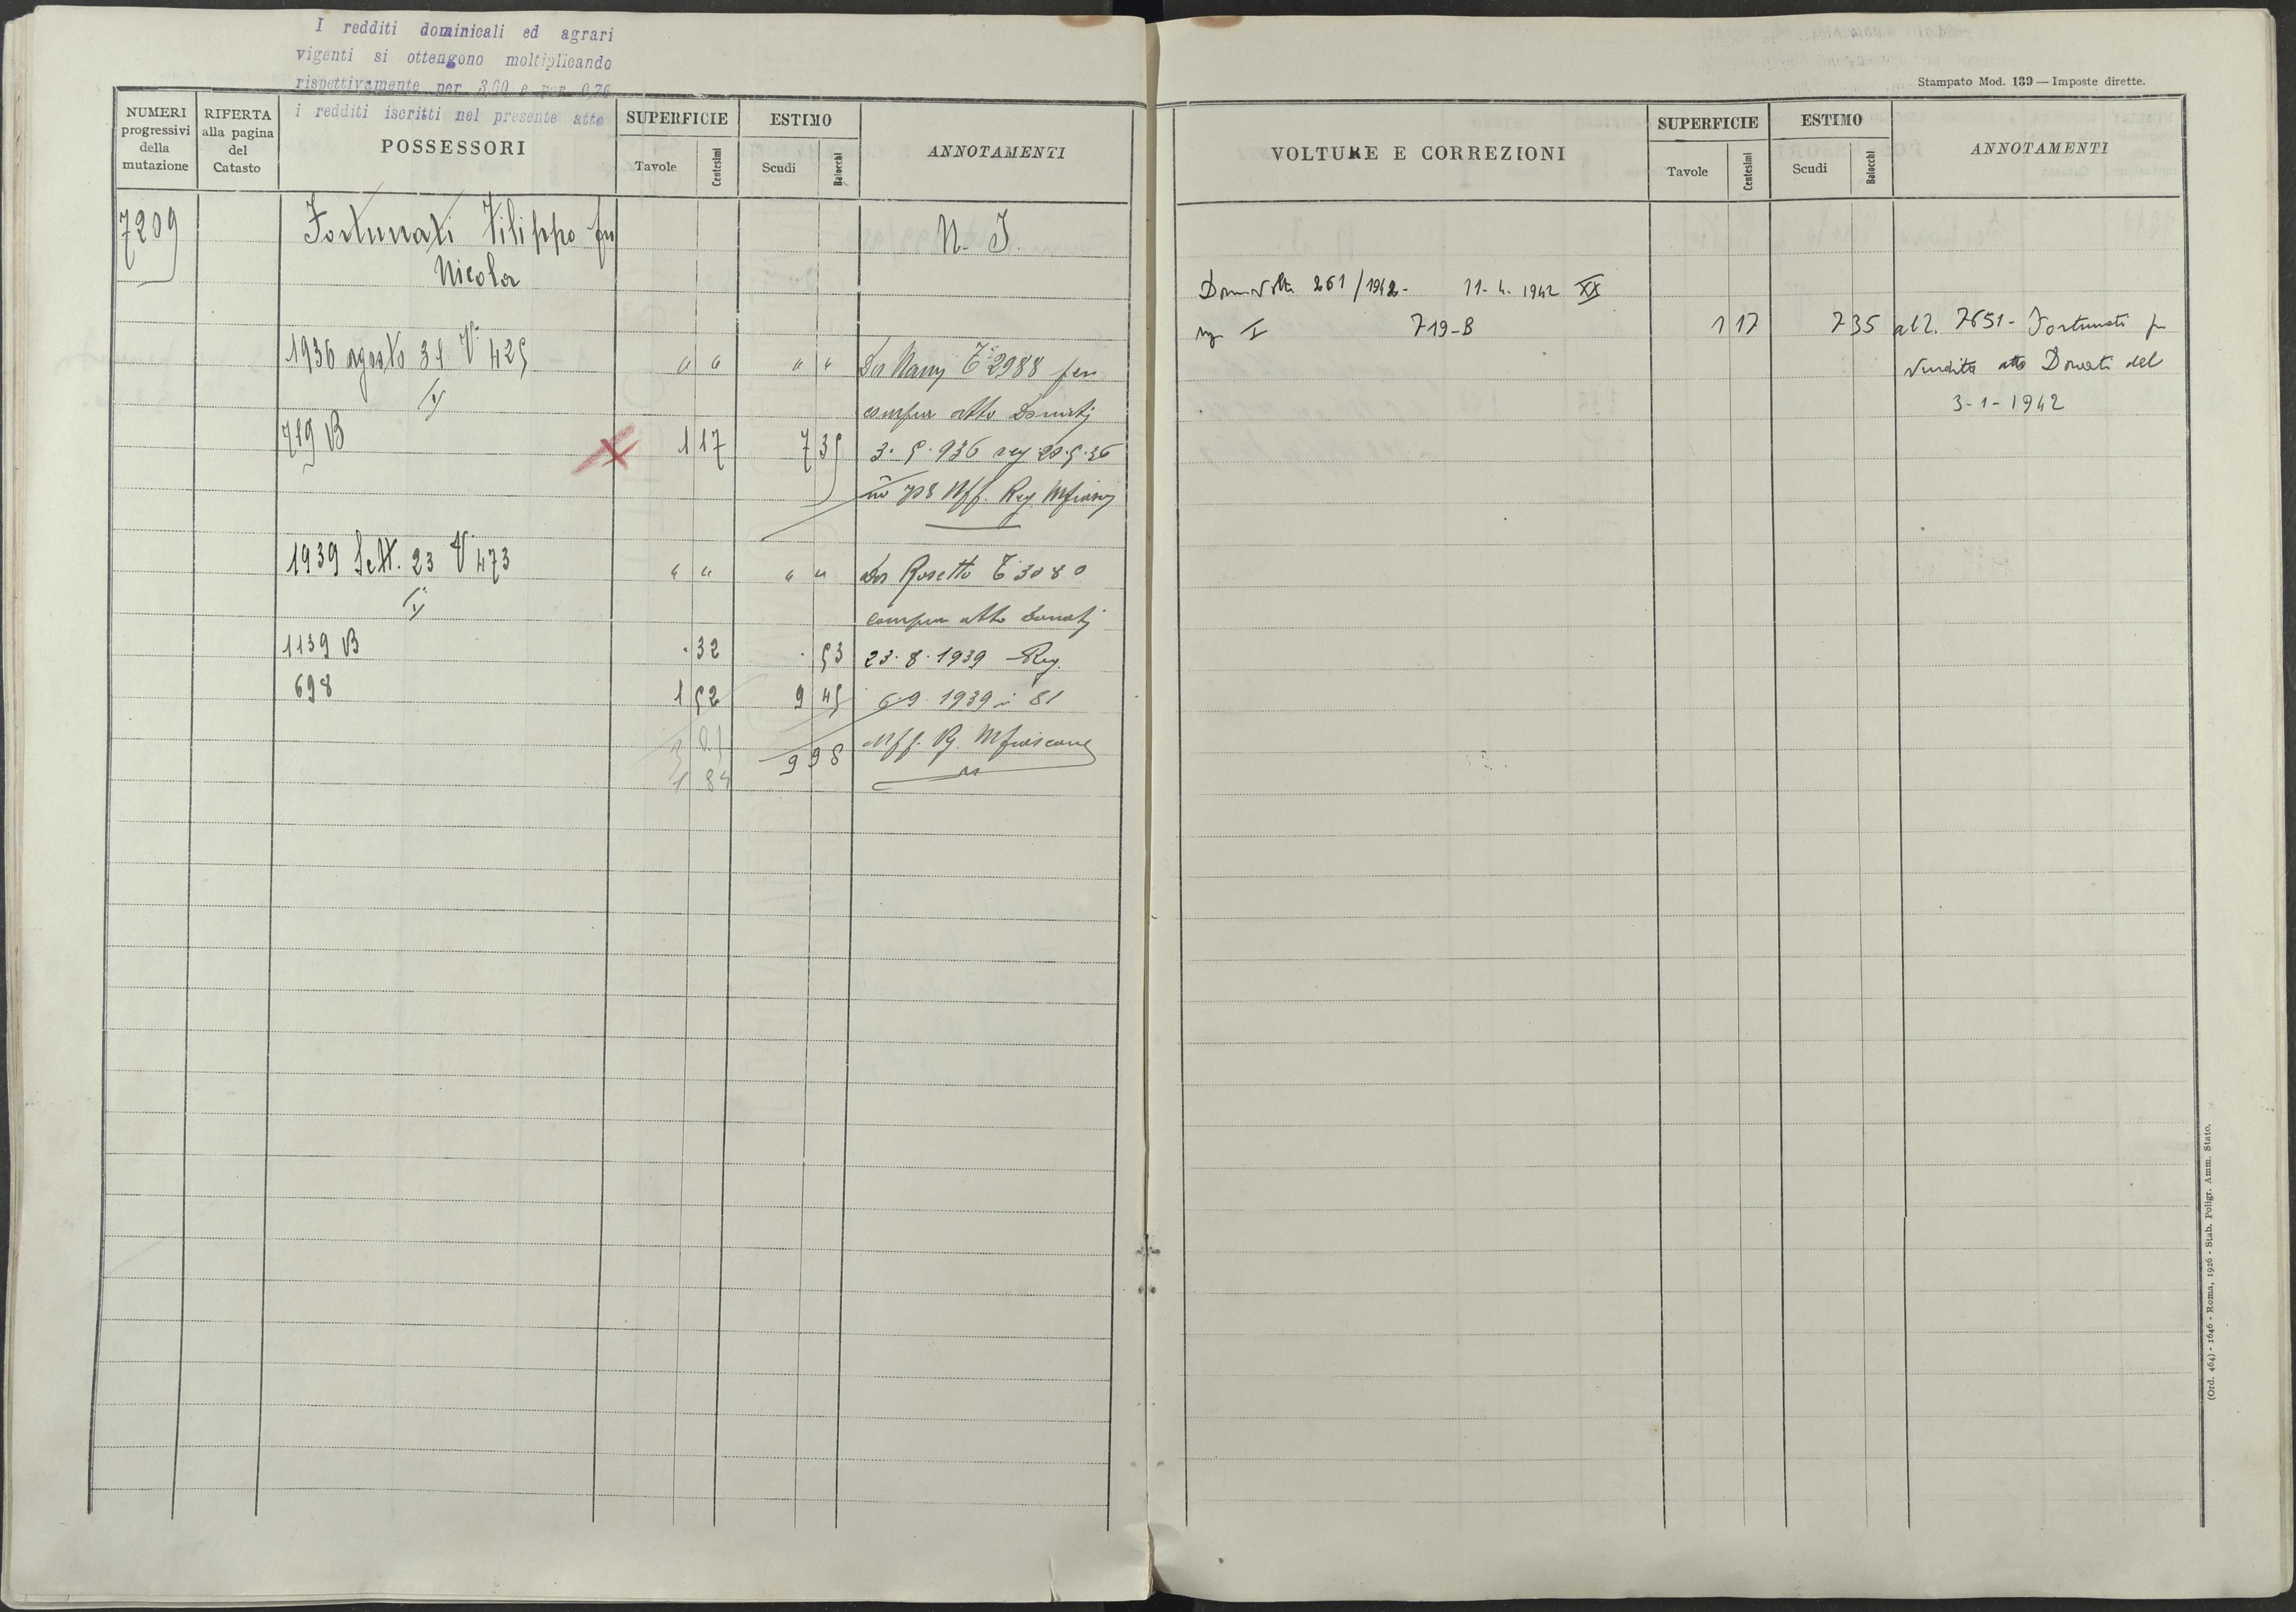 I redditi dominicali ed agrari
vigenti si ottengono moltiplicando
rispettivamente per 3,60 e per 0,76
i redditi iscritti nel presente atto
NUMERI progressivi della mutazione
RIFERTA alla pagina del Catasto
POSSESSORI
SUPERFICIE
Tavole Centesimi
ESTIMO
Scudi Baiocchi
ANNOTAMENTI
7209 Fortunati Filippo fu N. I.
Nicola
1936 agosto 31 V 425 " " " " Da Nanni 2988 per
compra atto Donati
719 B 1 17 7 35 3. 5. 936 reg 20.5.36
no 708 Uff. Reg.
1939 Sett. 23 V 473 " " " " Da Rosetto 3080
compra atto Donati
1139 B . 32 . 53 23. 8. 1939 Reg.
698 1 52 9 45 6 9 1939 81
3 01 9 98 Uff. Rg.
1 84
Stampato Mod. 139 — Imposte dirette.
VOLTURE E CORREZIONI
SUPERFICIE
Tavole Centesimi
ESTIMO
Scudi Baiocchi
ANNOTAMENTI
261/1942 - 11. 4. 1942 XX
I 719-B 1 17 7 35 al 2. 7651 - Fortunati
vendita atto Donati del
3-1-1942
(Ord. 464) - 1646 - Roma, 1926 - Stab. Poligr. Amm. Stato.